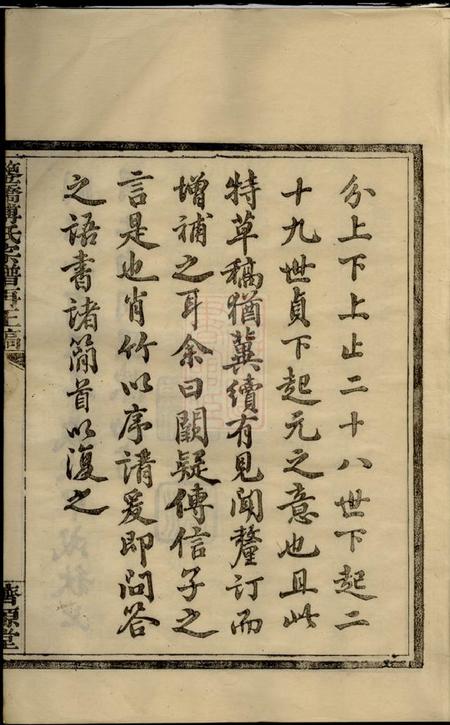 分上下上止二十八世下起二
十九世貞下起元之意也且此
特草稿猶冀續有見聞釐訂而
增補之耳余曰闕疑傳信子之
言是也肖竹以序請爰即問答
之語書諸簡首以復之
氏宗譜
堂